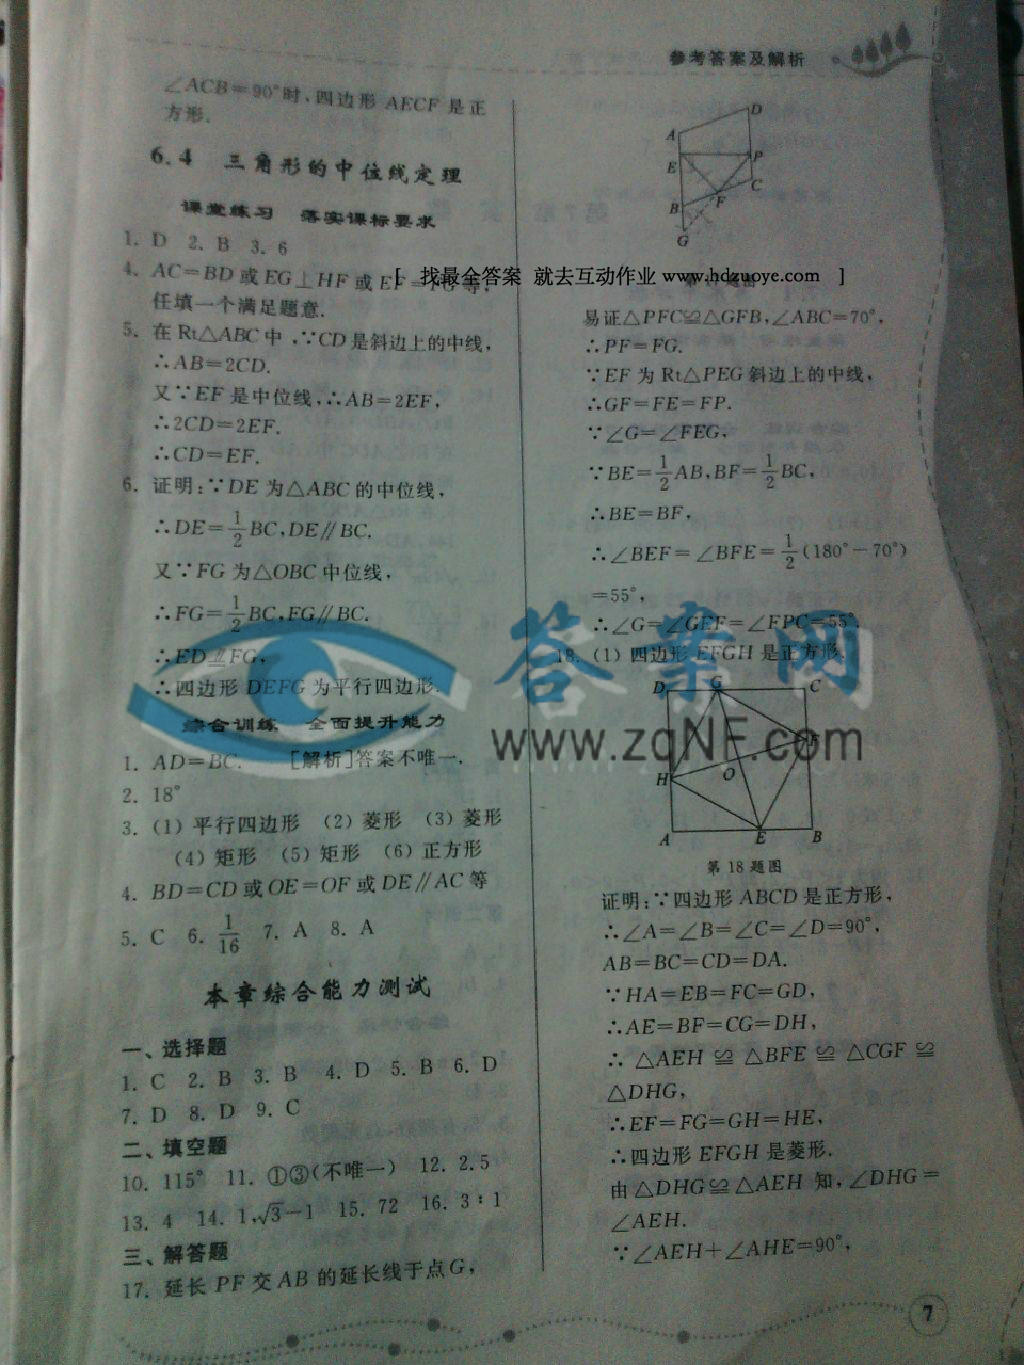 参考答案及解析
∠ACB=90°时,四边形 AECF 是正
方形.
6.4 三角形的中位线定理
课堂练习 落实课标要求
1. D 2. B 3. 6
4. AC=BD 或 EG⊥HF 或 EF=FG 等,
任填一个满足题意.
5. 在 Rt△ABC 中,∵CD 是斜边上的中线,
∴AB=2CD.
又∵EF 是中位线,∴AB=2EF,
∴2CD=2EF.
∴CD=EF.
6. 证明:∵DE 为△ABC 的中位线,
∴DE=1/2 BC,DE∥BC.
又∵FG 为△OBC 中位线,
∴FG=1/2 BC,FG∥BC.
∴ED⫽FG,
∴四边形 DEFG 为平行四边形.
综合训练 全面提升能力
1. AD=BC. [解析]答案不唯一.
2. 18°
3. (1) 平行四边形 (2) 菱形 (3) 菱形
(4) 矩形 (5) 矩形 (6) 正方形
4. BD=CD 或 OE=OF 或 DE∥AC 等
5. C 6. 1/16 7. A 8. A
本章综合能力测试
一、选择题
1. C 2. B 3. B 4. D 5. B 6. D
7. D 8. D 9. C
二、填空题
10. 115° 11. ①③(不唯一) 12. 2.5
13. 4 14. 1,√3-1 15. 72 16. 3∶1
三、解答题
17. 延长 PF 交 AB 的延长线于点 G,
D
A
E
P
C
F
B
G
[ 找最全答案 就去互动作业 www.hdzuoye.com ]
易证△PFC≌△GFB,∠ABC=70°,
∴PF=FG.
∵EF 为 Rt△PEG 斜边上的中线,
∴GF=FE=FP.
∵∠G=∠FEG,
∵BE=1/2 AB,BF=1/2 BC,
∴BE=BF,
∴∠BEF=∠BFE=1/2(180°-70°)
=55°,
∴∠G=∠GEF=∠FPC=55°.
18. (1) 四边形 EFGH 是正方形
D G C
F
H O
A E B
第 18 题图
证明:∵四边形 ABCD 是正方形,
∴∠A=∠B=∠C=∠D=90°,
AB=BC=CD=DA.
∵HA=EB=FC=GD,
∴AE=BF=CG=DH,
∴△AEH≌△BFE≌△CGF≌
△DHG,
∴EF=FG=GH=HE,
∴四边形 EFGH 是菱形.
由△DHG≌△AEH 知,∠DHG=
∠AEH.
∵∠AEH+∠AHE=90°,
答案网
www.zqNF.com
7